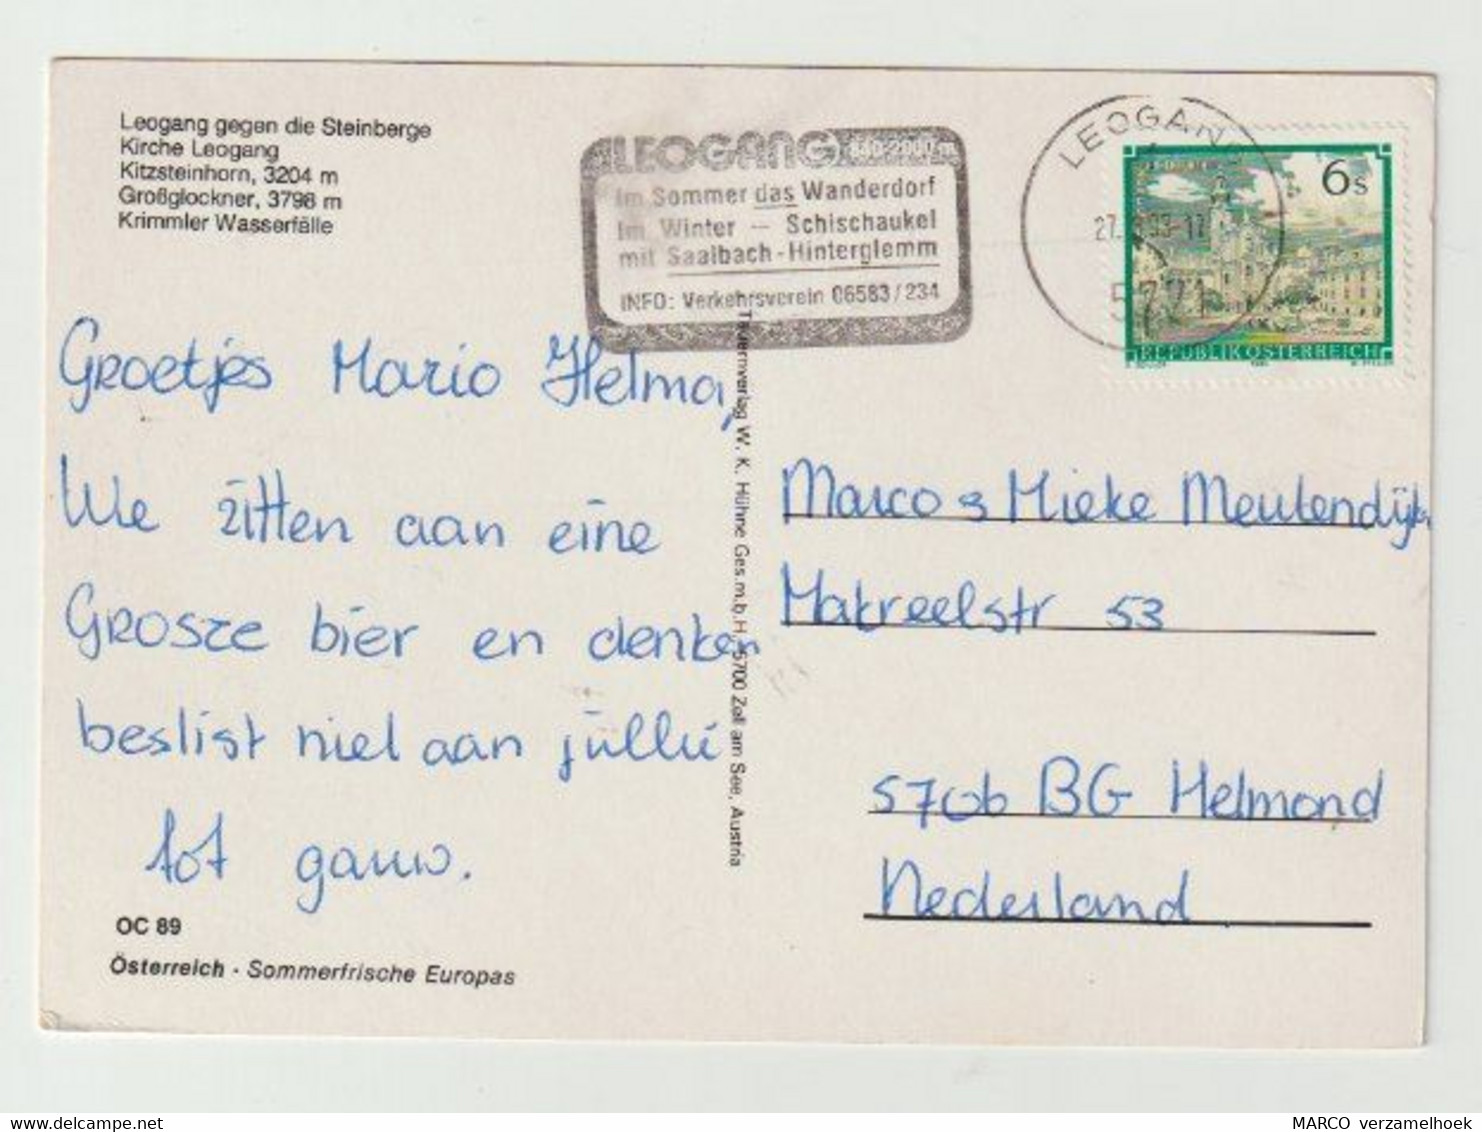 Leogang gegen die Steinberge
Kirche Leogang
Kitzsteinhorn, 3204 m
Großglockner, 3798 m
Krimmler Wasserfälle
LEOGANG 840-2000 m
Im Sommer das Wanderdorf
Im Winter — Schischaukel
mit Saalbach-Hinterglemm
INFO: Verkehrsverein 06583/234
LEOGANG
5771
6s
REPUBLIK ÖSTERREICH
Groetjes Mario Helma,
We zitten aan eine
Grosze bier en denken
beslist niet aan jüllie
tot gauw.
OC 89
Österreich · Sommerfrische Europas
Tauernverlag W. K. Hühne Ges.m.b.H. 5700 Zell am See, Austria
Marco & Mieke Meulendijks
Matreelstr 53
5706 BG Helmond
Nederland
MARCO verzamelhoek